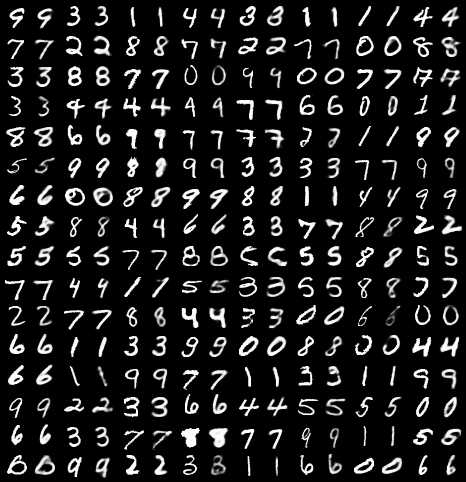 9 9 3 3 1 1 4 4 3 3 1 1 1 1 4 4
7 7 2 2 8 8 7 7 2 2 7 7 0 0 8 8
3 3 8 8 7 7 0 0 9 9 0 0 7 7 17 17
3 3 4 4 4 4 4 4 7 7 6 6 0 0 1 1
8 8 6 6 9 9 7 7 7 7 2 2 1 1 9 9
5 5 9 9 8 8 9 9 3 3 3 3 7 7 9 9
6 6 0 0 8 8 9 9 8 8 1 1 4 4 9 9
5 5 8 8 4 4 6 6 3 3 7 7 8 8 2 2
5 5 5 5 7 7 8 8 5 5 5 5 8 8 5 5
7 7 4 4 1 1 5 5 3 3 5 5 8 8 7 7
2 2 7 7 8 8 4 4 3 3 0 0 6 6 0 0
6 6 1 1 3 3 9 9 0 0 8 8 0 0 4 4
6 6 1 1 9 9 7 7 1 1 3 3 1 1 9 9
9 9 2 2 3 3 6 6 4 4 5 5 5 5 0 0
6 6 3 3 7 7 8 8 7 7 9 9 1 1 5 5
0 0 9 9 2 2 3 3 1 1 6 6 0 0 6 6